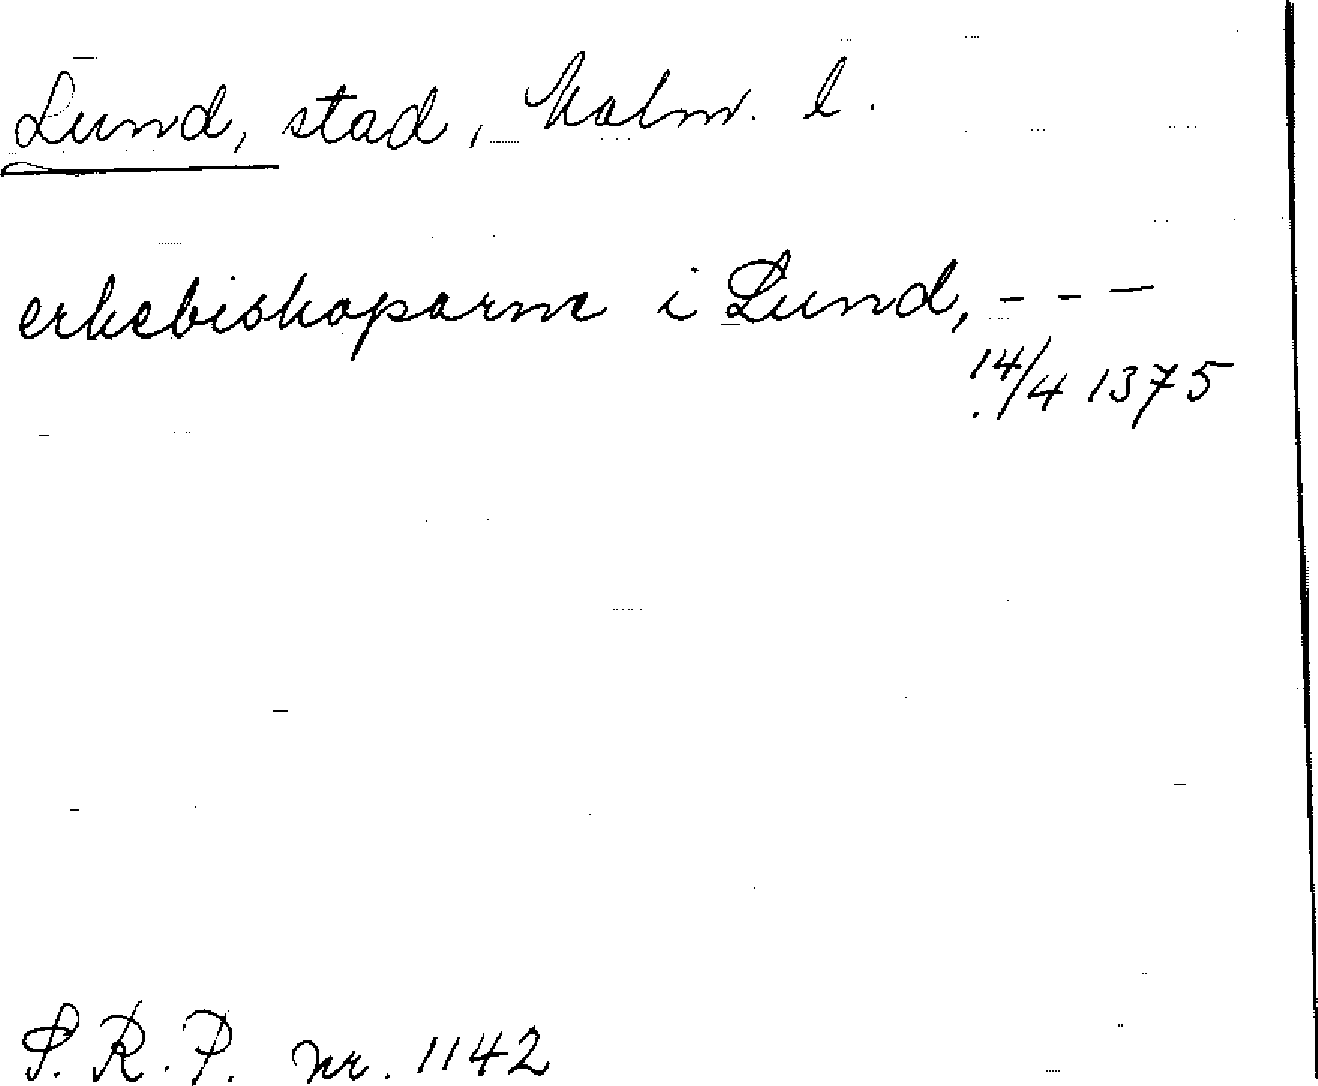 Lund, stad, Malm. l.
erkebiskoparne i Lund, - - -
14/4 1375
S. R. P. nr. 1142